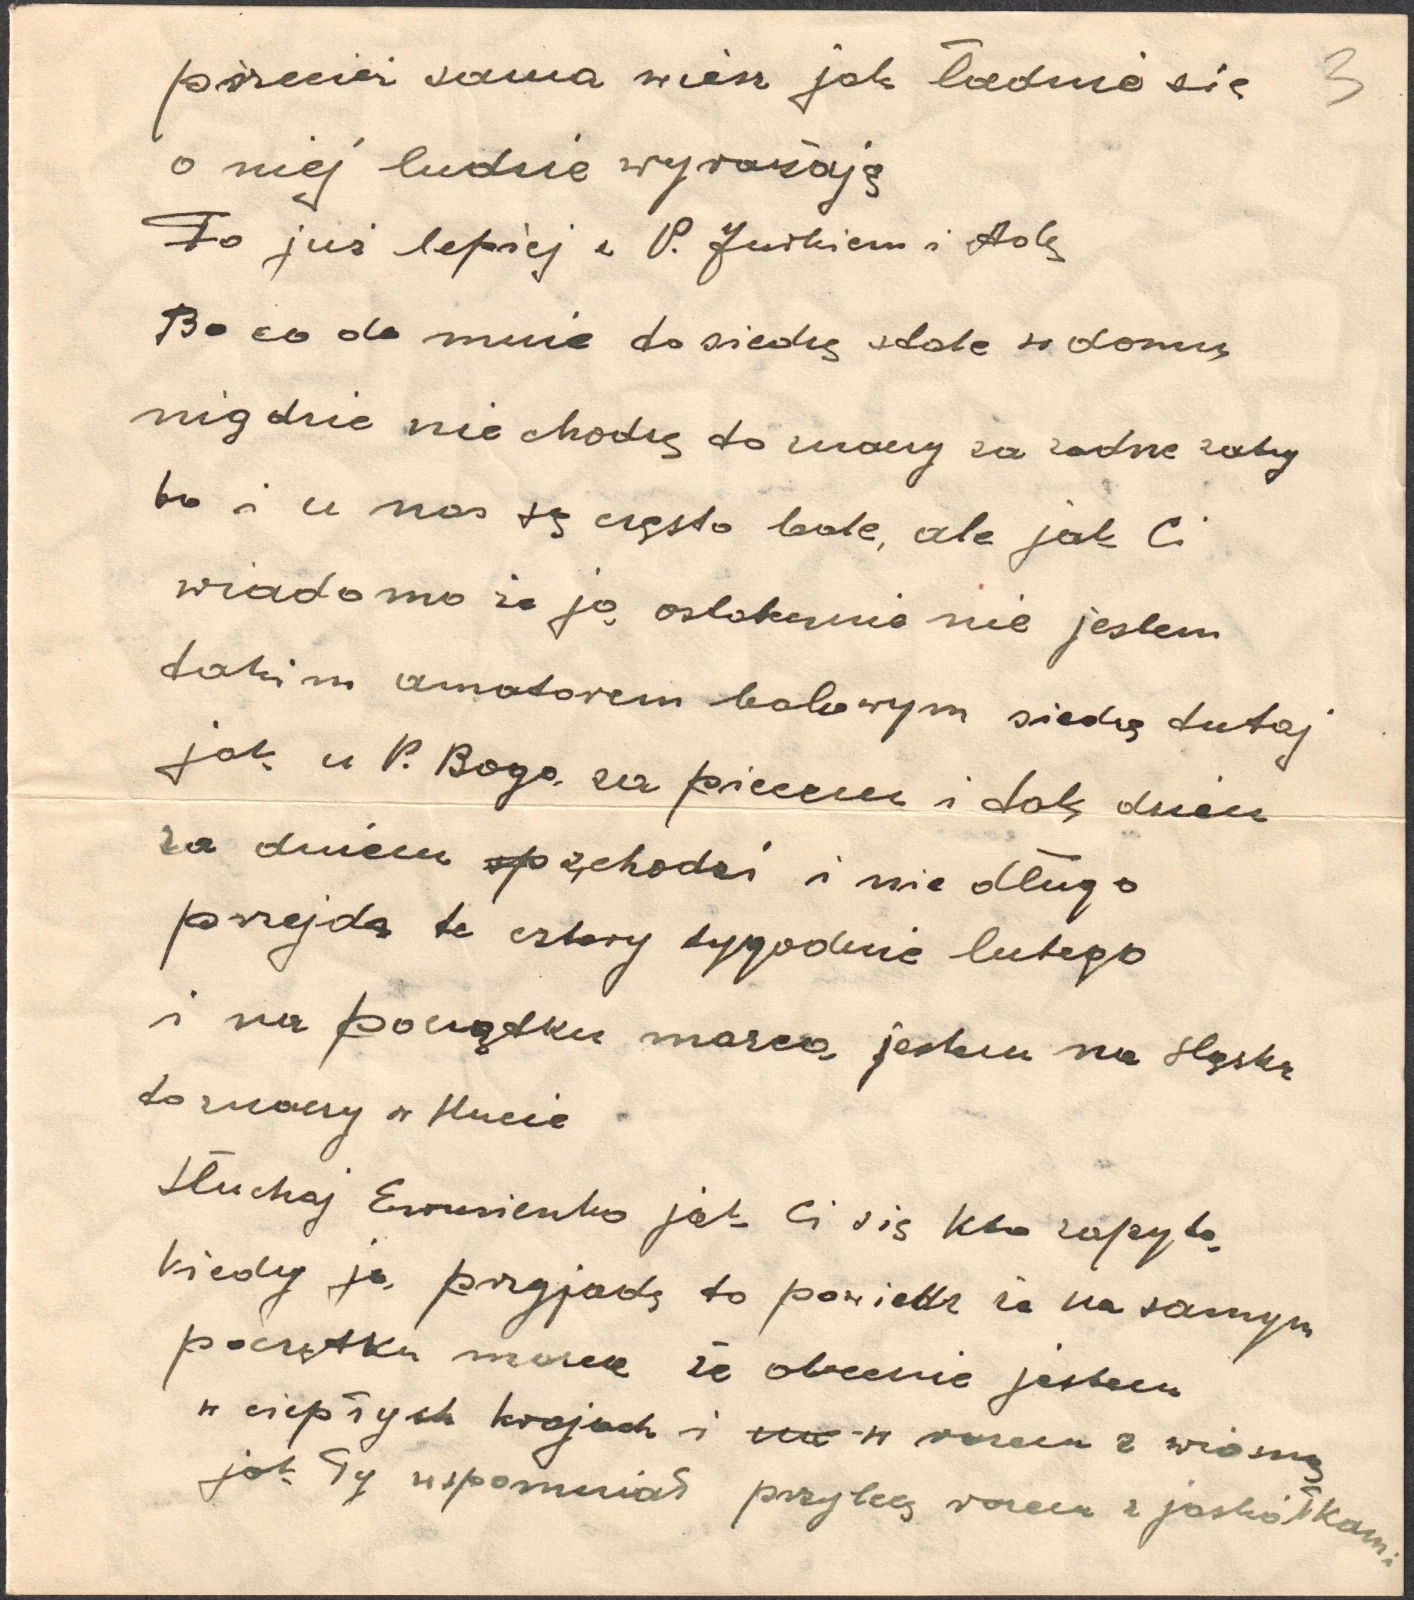 3
przecież sama wiesz jak ładnie się
o niej ludzie wyrażają
To już lepiej z P. Jurkiem i Adą
Bo co do mnie to siedzę stale w domu
nigdzie nie chodzę to znaczy za żadne
bo i u nas są często bale, ale jak Ci
wiadomo że ja ostatecznie nie jestem
takim amatorem balowym siedzę tutaj
jak u P. Boga za piecem i tak dzień
za dniem przchodzi i nie długo
przejdą te cztery tygodnie lutego
i na początku marca jestem na Śląsku
to znaczy w Hucie
Słuchaj Ewunieńko jak Ci się kto zapyta
kiedy ja przyjadę to powiedz że na samym
początku marca że obecnie jestem
w ciepłych krajach i w razem z wiosną
jak Ty wspomniał przylecę razem z jaskółkami